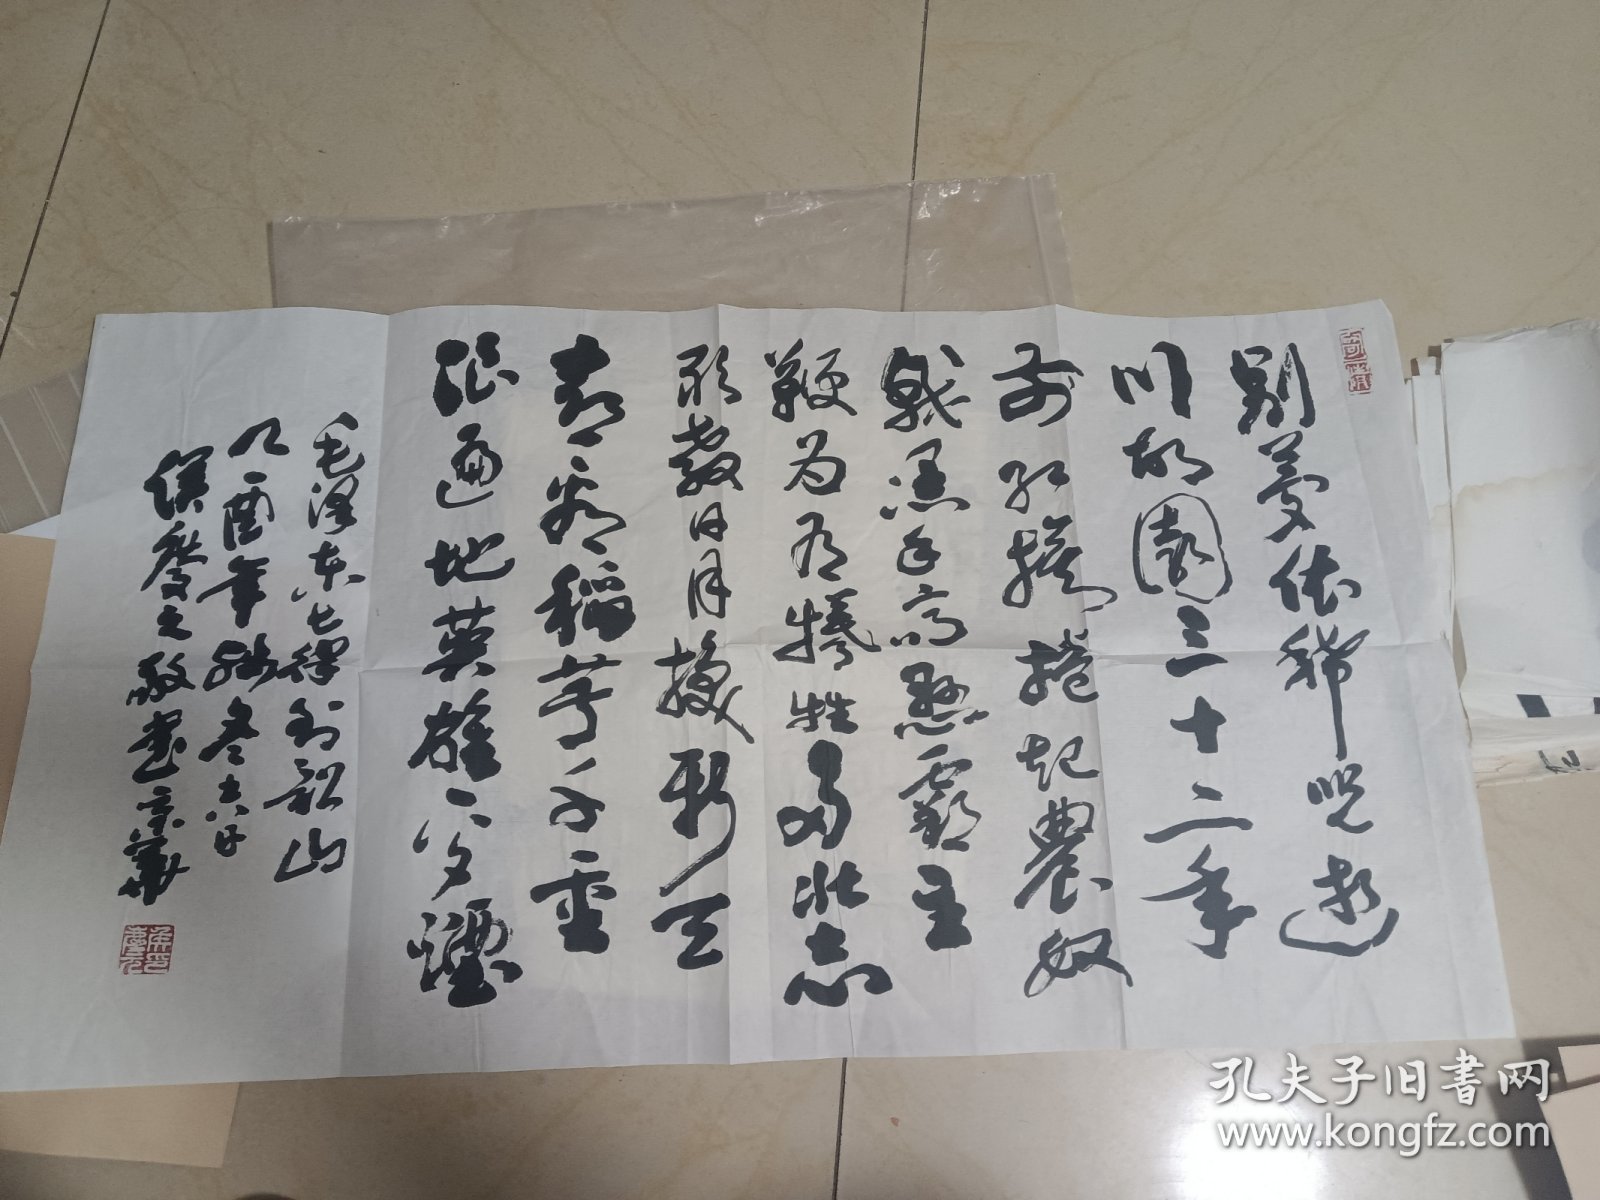 別夢依稀咒逝
川故園三十二年
前红旗捲起農奴
戟黑手高懸霸主
鞭为有犧牲多壯志
敢教日月換新天
喜看稻菽千重
浪遍地英雄下夕煙
毛泽东七律到韶山
乙酉年 冬
侯慶 敬書京華
孔夫子旧书网
www.kongfz.com